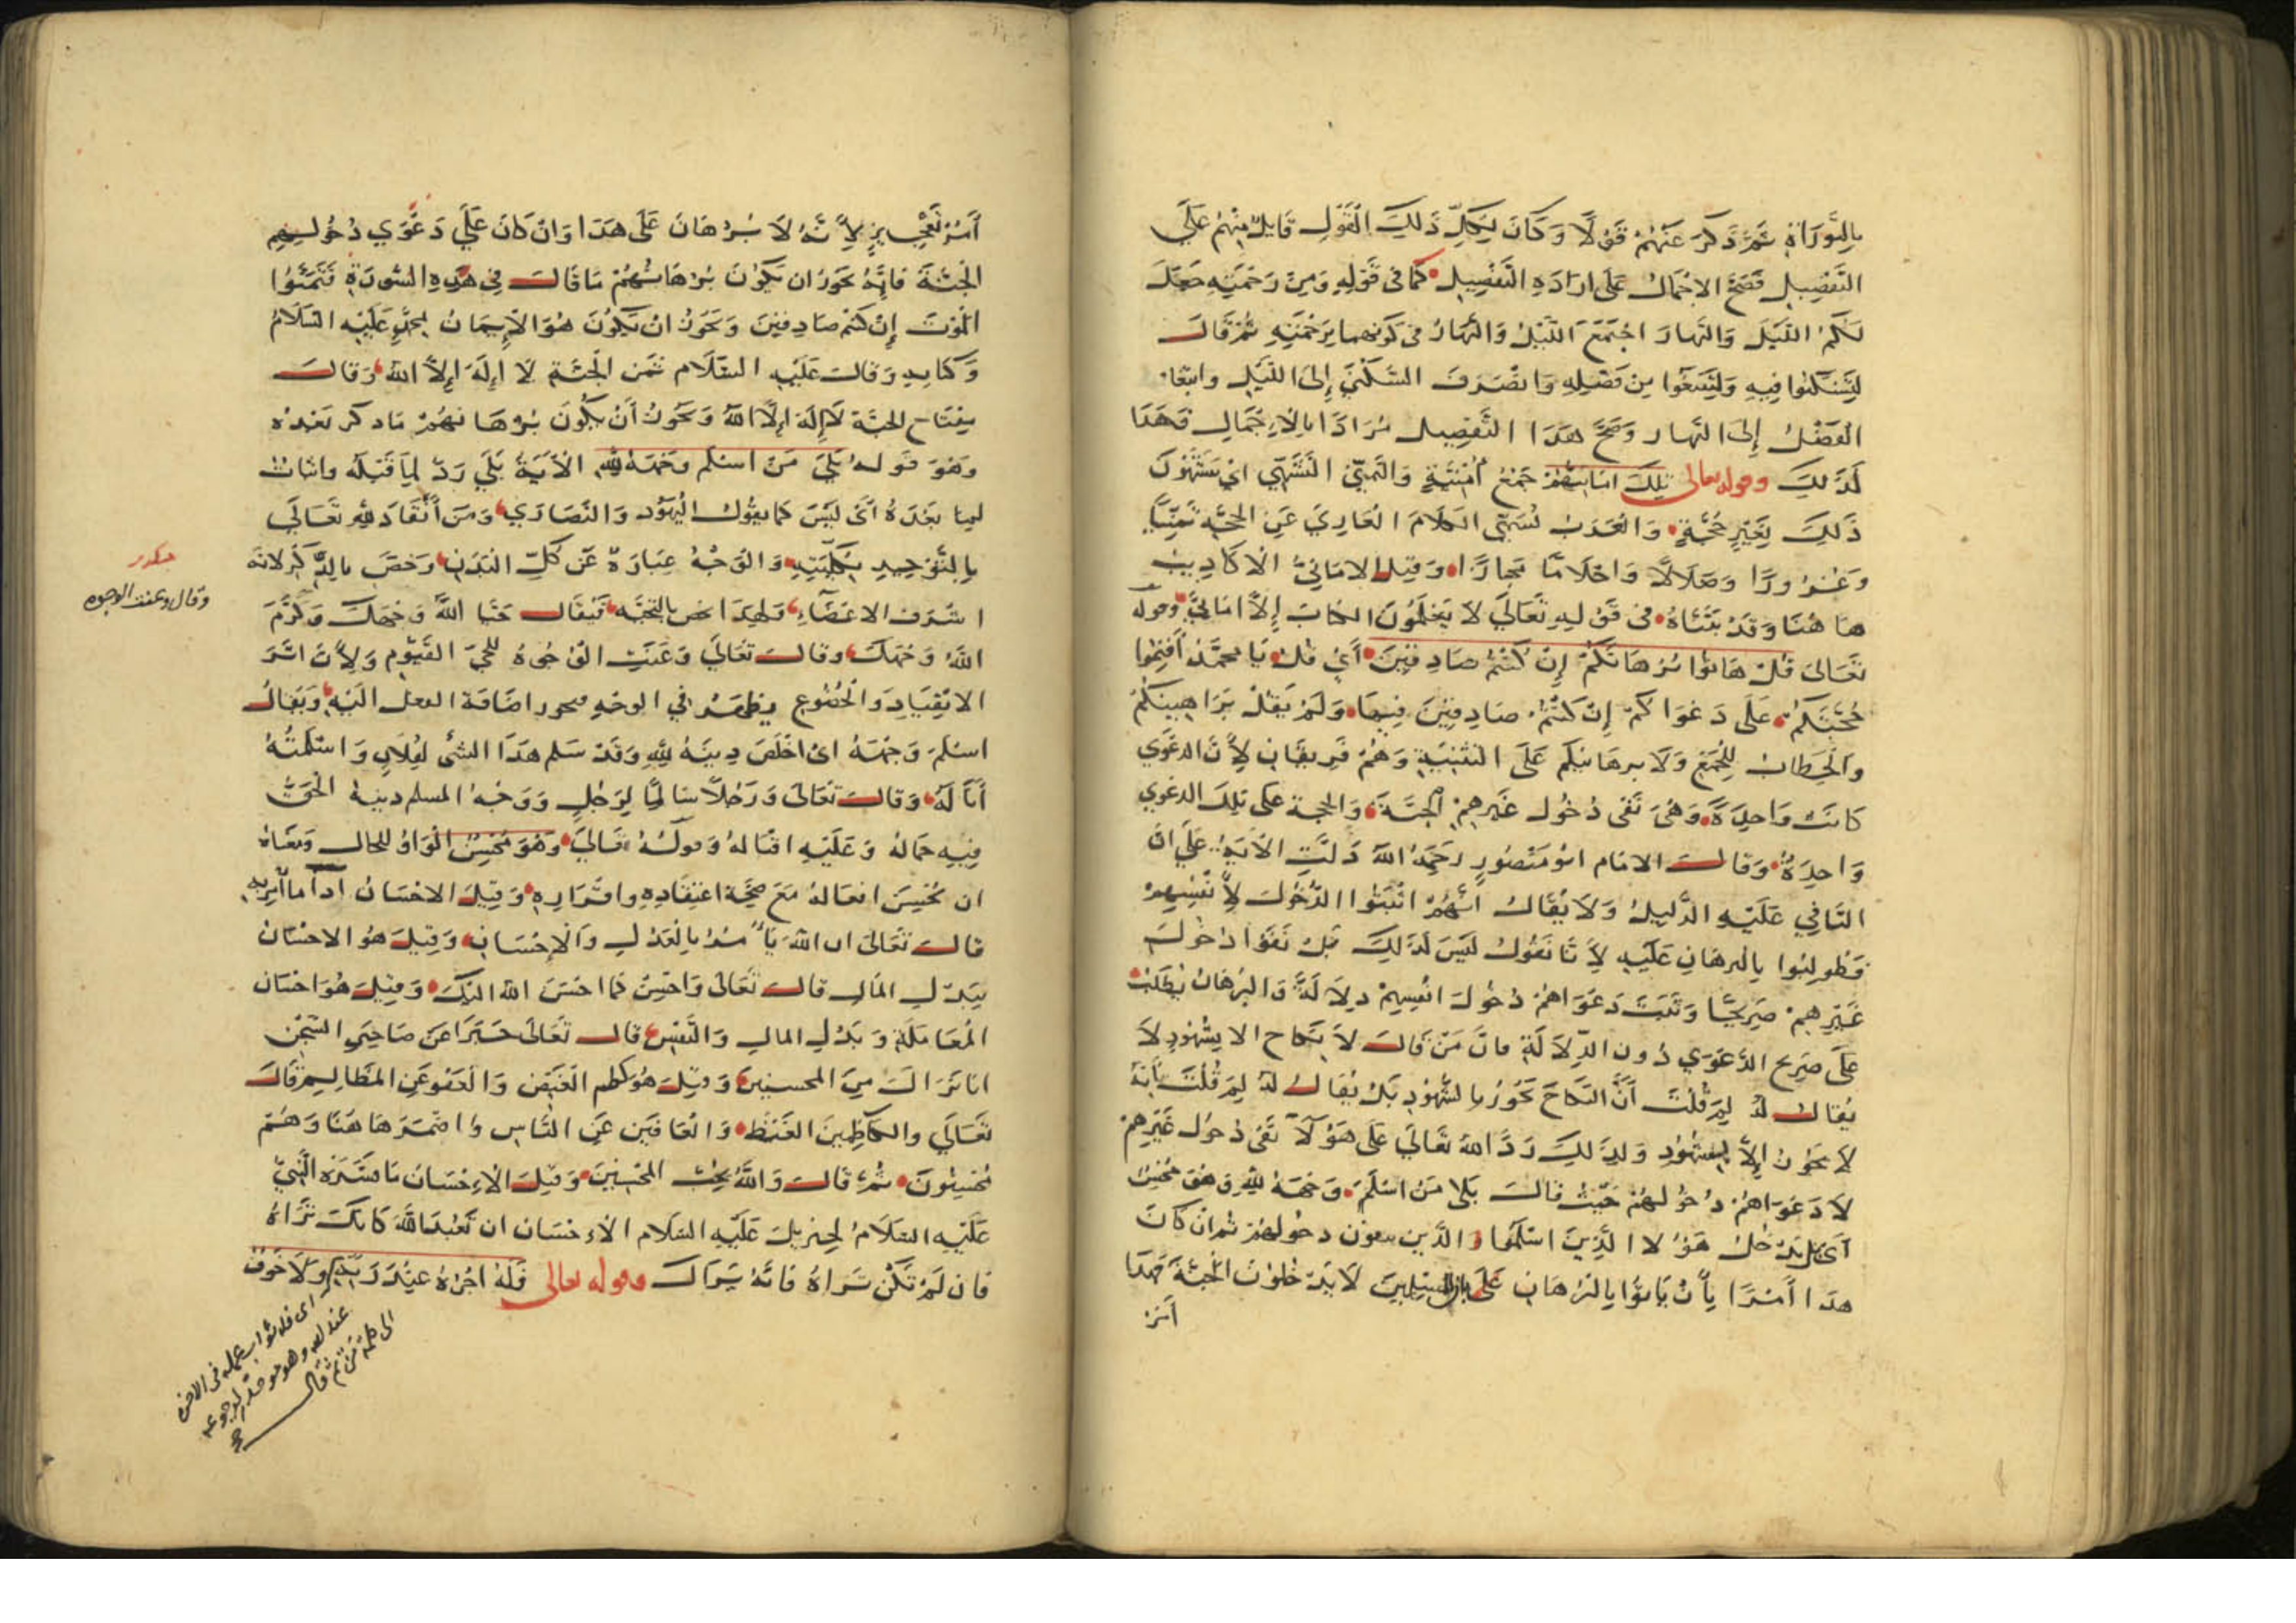 بالتوراة ثم ذكر عنهم قولا وكان لكل ذلك القول قايل منهم على
التفصيل فصح الاجمال على ارادة التفصيل كما فى قوله ومن رحمته جعل
لكم الليل والنهار اجتمع الليل والنهار فى كونهما برحمته ثم قال
لتسكنوا فيه ولتبتغوا من فضله وانصرف السكنى إلى الليل وابتغاء
الفضل إلى النهار وصح هذا التفصيل مرادا بالاجمال فهذا
كذلك وقوله تعالى تلك امانيهم جمع أمنية والتمني التشهي اى يشتهون
ذلك بغير حجة والعرب تسمى الكلام العاري عن الحجة تمنيا
وغرورا وضلالا واحلاما مجازا وقيل الاماني الاكاذيب
هاهنا وقد بيناه فى قوله تعالى لا يعلمون الكتاب إلا اماني وقوله
تعالى قل هاتوا برهانكم إن كنتم صادقين أي قل يا محمد أقيموا
حجتكم على دعواكم إن كنتم صادقين فيها ولم يقل براهينكم
والخطاب للجمع ولا برهانيكم على التثنية وهم فريقان لأن الدعوي
كانت واحدة وهى نفى دخول غيرهم الجنة والحجة على تلك الدعوي
واحدة وقال الامام ابو منصور رحمه الله دلت الآية على ان
النافي عليه الدليل ولا يقال انهم اثبتوا الدخول لأنفسهم
فطولبوا بالبرهان عليه لأنا نقول ليس كذلك بل نفوا دخول
غيرهم صريحا وثبت دعواهم دخول انفسهم دلالة والبرهان يطلب
على صريح الدعوي دون الدلالة فان من قال لا نكاح الا بشهود لا
يقال له لم قلت أن النكاح يجوز بالشهود بل يقال له لم قلت بأنه
لا يجوز إلا بشهود ولذلك رد الله تعالي على هؤلآ نفى دخول غيرهم
لا دعواهم دخولهم حيث قال بلا من اسلم وجهه لله وهو محسن
أي بل يدخل هؤلا الذين اسلموا والذين ينفون دخولهم ثم ان كان
هذا أمرا بأن ياتوا بالبرهان على بان المسلمين لا يدخلون الجنة فهذا
أمر
أمر تعجيز لأنه لا برهان على هذا وان كان علي دعوي دخولهم
الجنة فانه يجوز ان يكون برهانهم ما قال في هذه السورة فتمنوا
الموت إن كنتم صادقين ويجوز ان يكون هو الإيمان بمحمد عليه السلام
وكتابه وقال عليه السلام ثمن الجنة لا إله إلا الله وقال
مفتاح الجنة لا إله إلا الله ويجوز أن يكون برهانهم ماذكر بعده
وهو قوله بلى من اسلم وجهه لله الآية بلي رد لما قبله واثبات
لما بعده أى ليس كما يقول اليهود والنصاري ومن أنقاد لله تعالي
بالتوحيد بكليته والوجه عبارة عن كل البدن وخص بالذكر لانه
اشرف الاعضاء ولهذا خص بالتحية فيقال حيا الله وجهك وكرم
الله وجهك وقال تعالي وعنت الوجوه للحي القيوم ولأن اثر
الانقياد والخضوع يظهر في الوجه فيجوز اضافة الفعل اليه ويقال
اسلم وجهه اى اخلص دينه لله وقد سلم هذا الشئ لفلان واسلمته
أنا له وقال تعالى ورجلا سالما لرجل ووجه المسلم دينه الحق
فيه جماله وعليه اقباله وقوله تعالي وهو محسن الواو للحال ومعناه
ان يحسن افعاله مع صحة اعتقاده واقراره وقيل الاحسان أدآ ما أمر به
قال تعالى ان الله يأمر بالعدل والإحسان وقيل هو الاحسان
ببذل المال قال تعالى واحسن كما احسن الله اليك وقيل هو احسان
المعاملة وبذل المال والنفس قال تعالى خبرا عن صاحبي السجن
انا نراك من المحسنين وقيل هو كظم الغيض والعفو عن المظالم قال
تعالي والكاظمين الغيظ والعافين عن الناس واضمر هاهنا وهم
محسنون ثم قال والله يحب المحسنين وقيل الإحسان ما فسره النبي
عليه السلام لجبريل عليه السلام الاحسان ان تعبد الله كانك تراه
فان لم تكن تراه فانه يراك وقوله تعالى فله اجره عند ربه ولا خوف
وقال وعنت الوجوه
اى فله ثواب عمله فى الاخرة
عند الله وهو موحد
الى كلمة من ثم قال